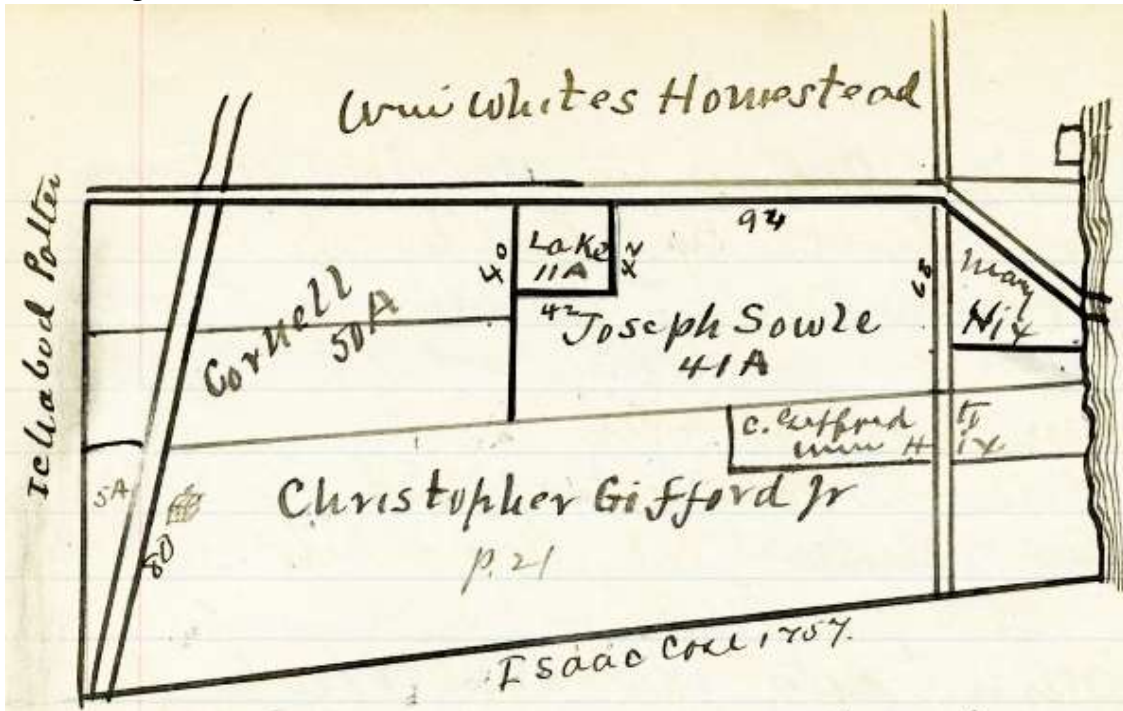 Wm Whites Homestead
Ichabod Potter
Cornell
50A
40
Lake
11A
42
42
94
Joseph Sowle
41A
68
Mary
Hix
C. Gifford
Hix
5A
80
Christopher Gifford Jr
p. 21
Isaac Case 1757.